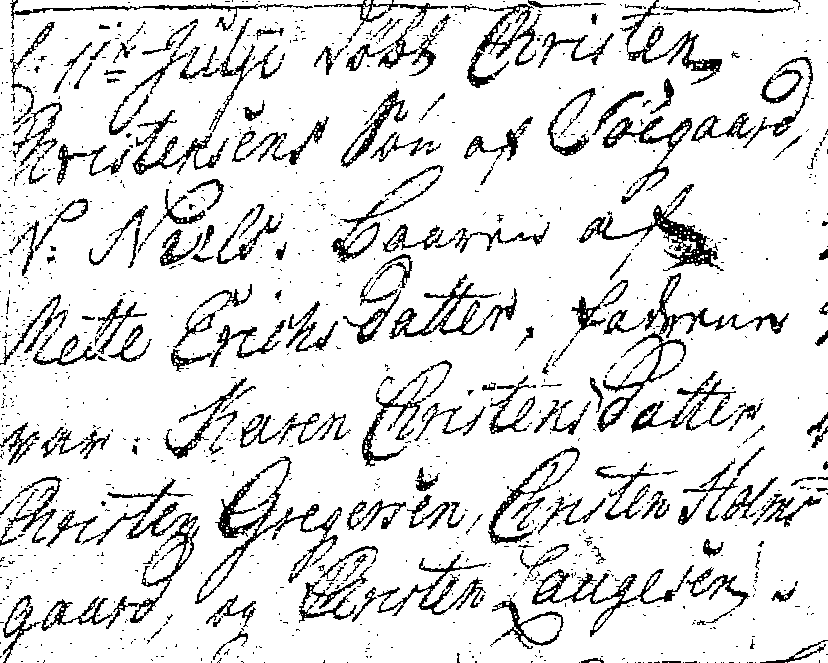 d: 11te Julji döbt Christen
Christensens Sön af Söegaard,
N: Niels. Baaren af
Mette Erichsdatter, fadrene
var. Karen Christensdatter,
Christen Gregersen, Christen Holms
gaard, og Christen Laugesen.